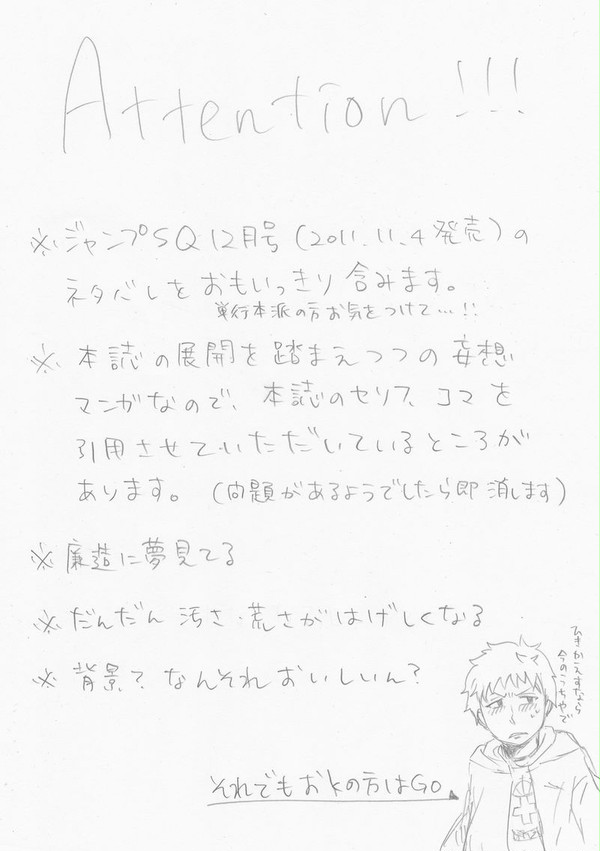 Attention!!!
※ジャンプSQ12月号(2011.11.4発売)の
ネタバレをおもいっきり含みます。
単行本派の方お気をつけて…!!
※本誌の展開を踏まえつつの妄想
マンガなので、本誌のセリフ、コマを
引用させていただいているところが
あります。(問題があるようでしたら即消します)
※廉造に夢見てる
※だんだん汚さ・荒さがはげしくなる
※背景?なんそれおいしいん?
ひきかえすなら
今のうちやで
それでもおkの方はGo